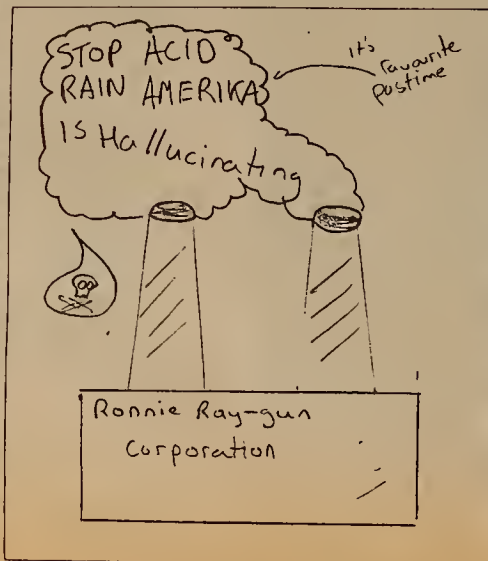 STOP ACID
RAIN AMERIKA
IS Hallucinating
it's
favourite
pastime
Ronnie Ray-gun
Corporation